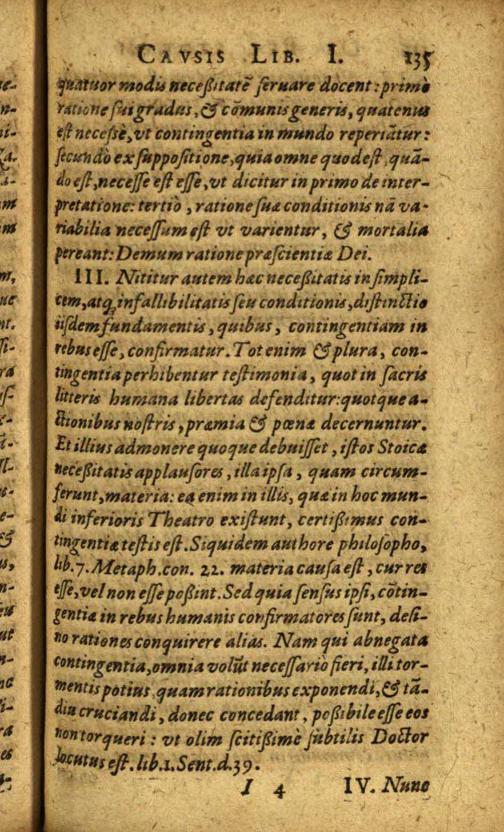 CAVSIS LIB. I. 135
quatuor modis neceßitatē seruare docent: primò
ratione sui gradus, & cōmunis generis, quatenus
est necesse, vt contingentia in mundo reperiātur:
secundò ex suppositione, quia omne quod est, quā-
do est, necesse est esse, vt dicitur in primo de inter-
pretatione: tertiò, ratione suæ conditionis nā va-
riabilia necessum est vt varientur, & mortalia
pereant: Demum ratione præscientiæ Dei.
III. Nititur autem hæc neceßitatis in simpli-
cem, atq; infallibilitatis seu conditionis, distinctio
iisdem fundamentis, quibus, contingentiam in
rebus esse, confirmatur. Tot enim & plura, con-
tingentia perhibentur testimonia, quot in sacris
litteris humana libertas defenditur: quotque a-
ctionibus nostris, præmia & pœnæ decernuntur.
Et illius admonere quoque debuisset, istos Stoicæ
neceßitatis applausores, illa ipsa, quam circum-
ferunt, materia: ea enim in illis, quæ in hoc mun-
di inferioris Theatro existunt, certißimus con-
tingentiæ testis est. Siquidem authore philosopho,
lib. 7. Metaph. con. 22. materia causa est, cur res
esse, vel non esse poßint. Sed quia sensus ipsi, cōtin-
gentiæ in rebus humanis confirmatores sunt, desi-
no rationes conquirere alias. Nam qui abnegata
contingentia, omnia volūt necessario fieri, illi tor-
mentis potius, quam rationibus exponendi, & tā-
diu cruciandi, donec concedant, poßibile esse eos
non torqueri: vt olim scitißimè subtilis Doctor
locutus est. lib. 1. Sent. d. 39.
I 4 IV. Nunc